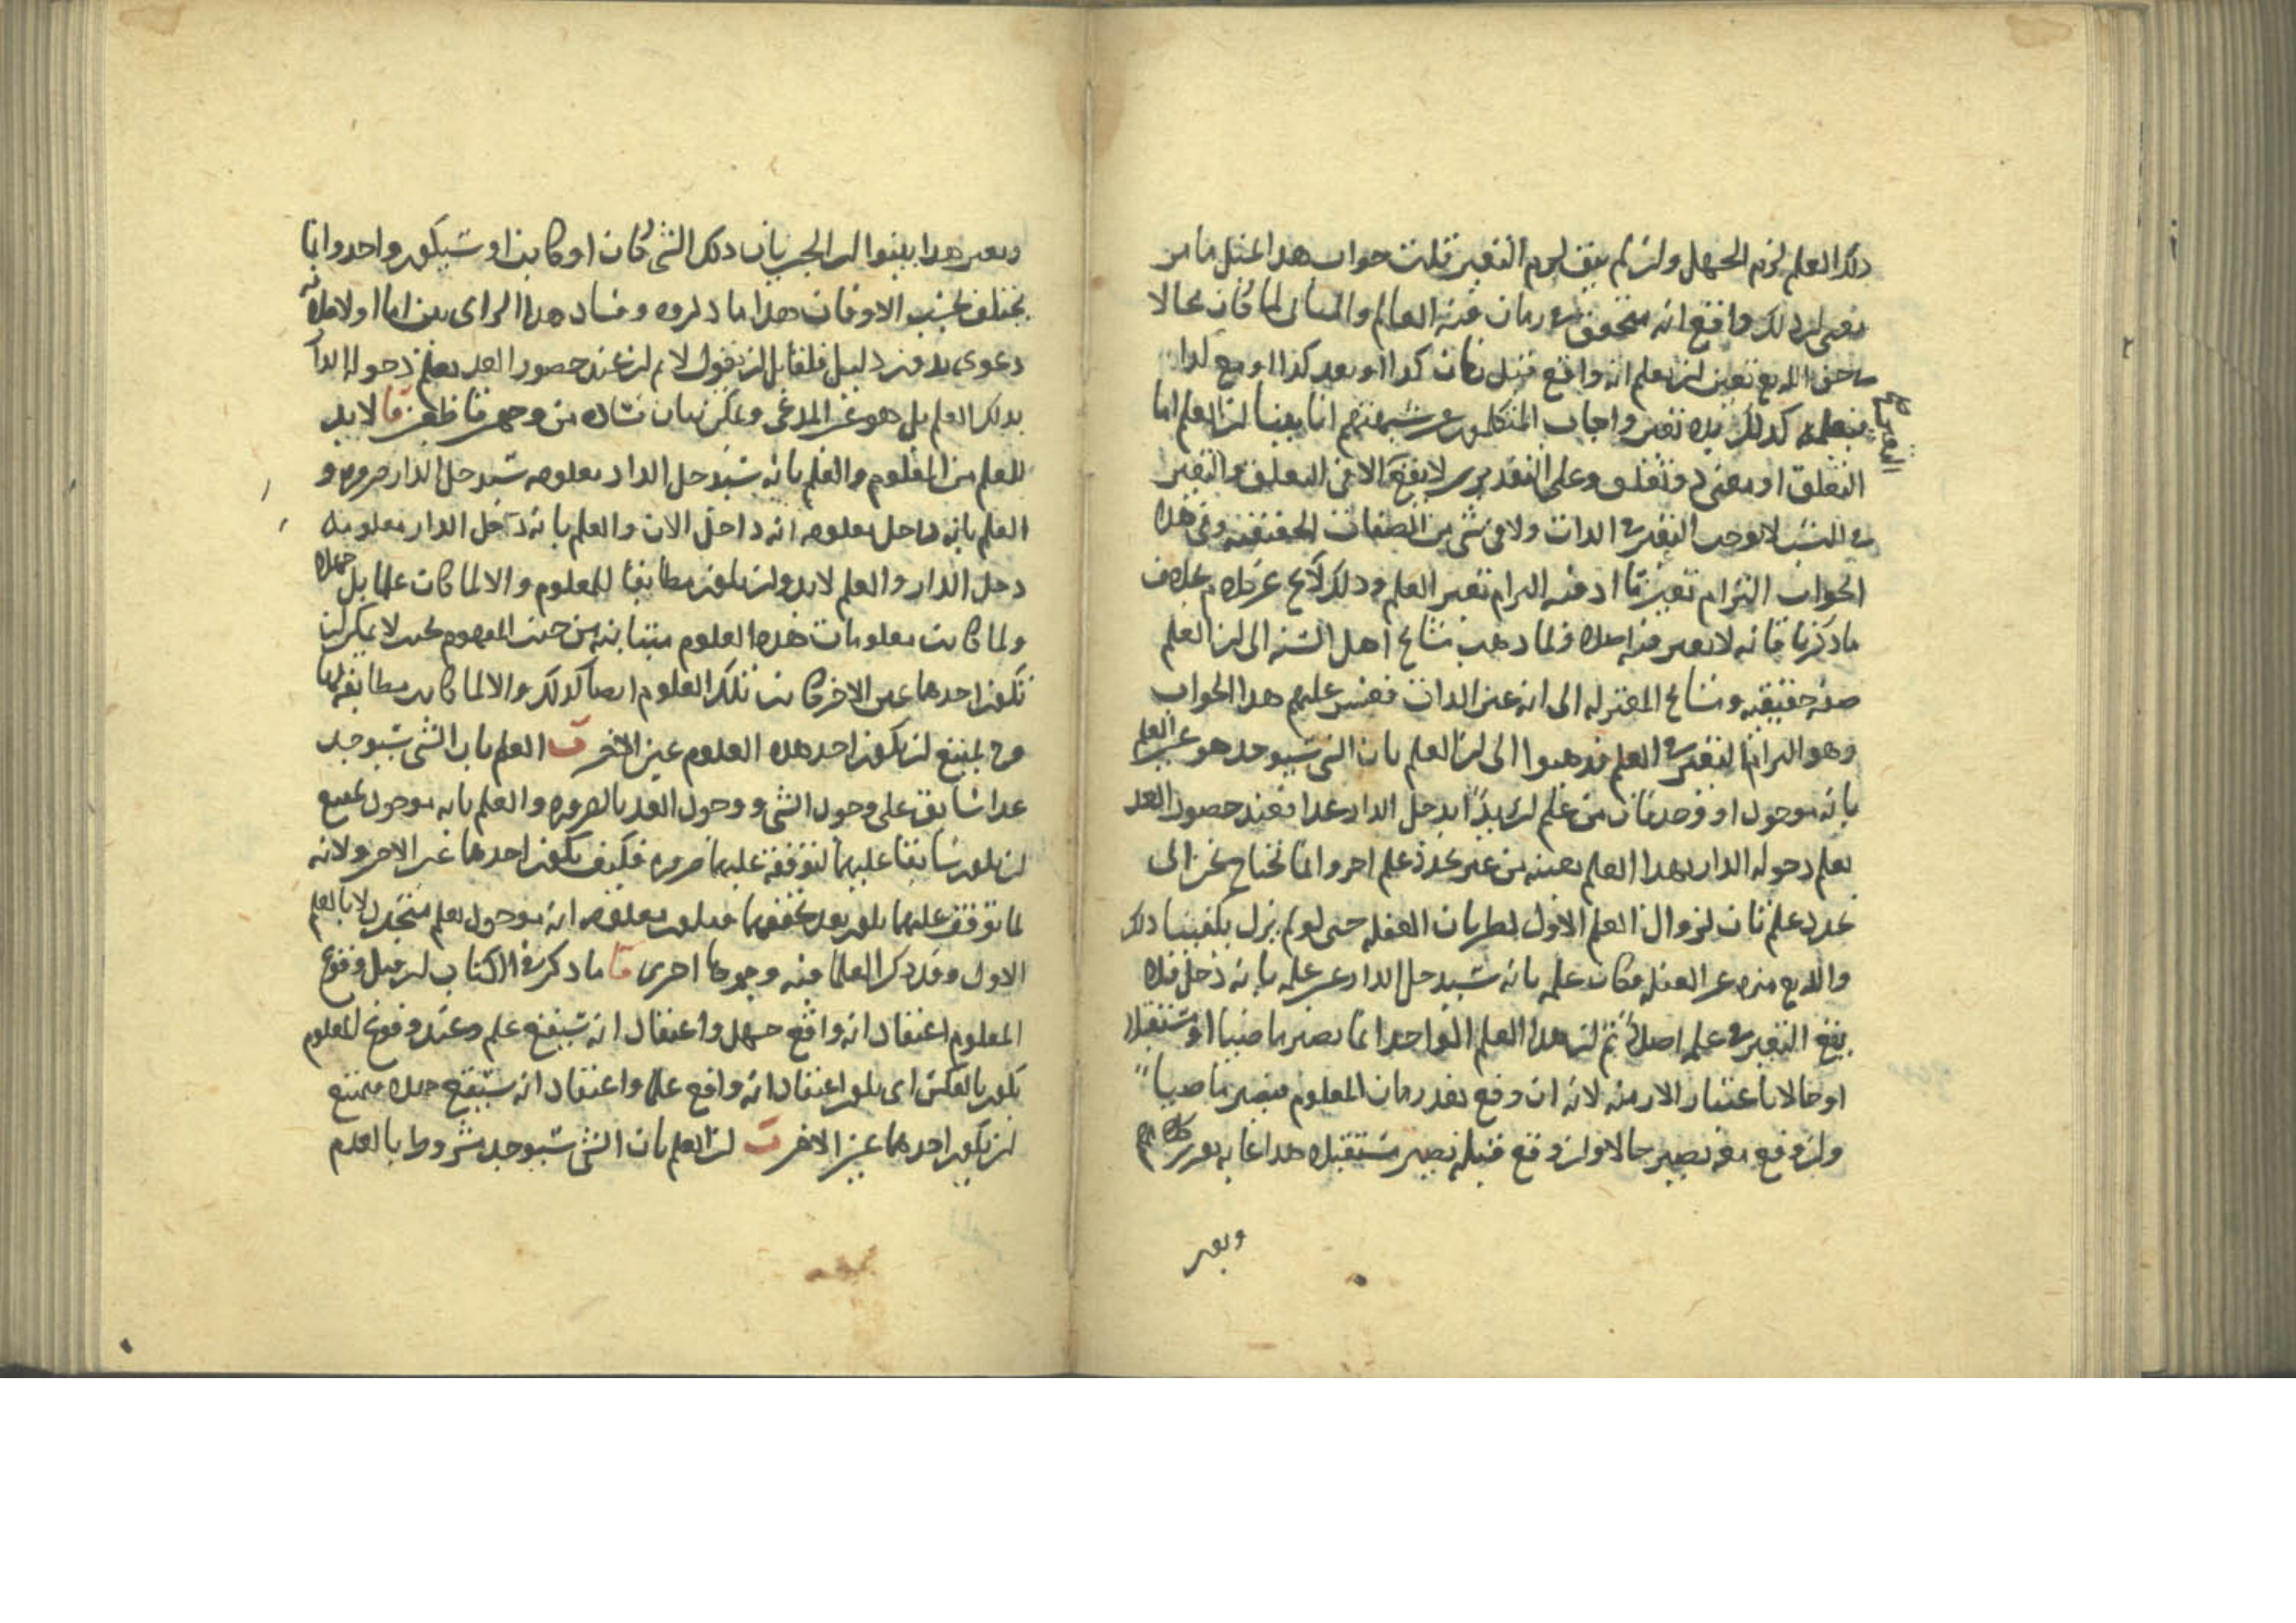 ذلك العلم لزم الجهل وان لم يبق لزم التغير قلت جواب هذا مثل ما مر
يعني ان ذلك واقع انه متحقق في زمان فيه العالم والثاني لما كان محالا
في حق الله تع تعين ان يعلم انه واقع قبل زمان كذا او بعد كذا او مع كذا
كذلك تغير واجاب المتكلمون عن شبهتهم انا بينا ان العلم اما
التعلق او صفة ذو تعلق وعلى التقديرين لا يقع الا في التعلق والتغير
في النسب لا يوجب التغير في الذات ولا في شي من الصفات الحقيقية وفي هذا
الجواب التزام تغير ما اذ فيه التزام تغير العلم وذلك لا يخ عن
ما ذكرنا فانه لا تغير فيه اصلا فلما ذهب مشايخ اهل السنة الى ان العلم
صفة حقيقية ومشايخ المعتزلة الى انه عين الذات فعسر عليهم هذا الجواب
وهو التزام التغير في العلم فذهبوا الى ان العلم بان الشي سيوجد هو عين العلم
بانه موجود او وجد فان من علم ان زيدا يدخل الدار غدا فعند حصول الغد
يعلم دخوله الدار بهذا العلم بعينه من غير تجدد علم اخر وانما نحتاج نحن الى
تجدد علم ثان لزوال العلم الاول لطريان الغفلة حتى لو لم يزل يكفينا ذلك
والله تع منزه عن الغفلة فكان علمه بانه سيدخل الدار عين علمه بانه دخل فلا
يقع التغير في علمه اصلا ثم ان هذا العلم الواحد انما يصير ماضيا او مستقبلا
او حالا باعتبار الازمنة لانه ان وقع بعد زمان المعلوم فيصير ماضيا
وان وقع معه يصير حالا وان وقع قبله يصير مستقبلا هذا غاية تقرير كلامهم
وبعد
وبعد هذا بينوا ان الخبر بان ذلك الشي كان او كاين او سيكون واحد وانما
يختلف بحسب الاوقات هذا ما ذكروه وفساد هذا الراي بين اما اولا فلانه
دعوى بدون دليل فلقايل ان يقول لا نم ان عند حصول الغد يعلم دخوله الدار
بذلك العلم بل هو عين المدعى ويمكن بيان فساده من وجهين قاطعين آ لا بد
للعلم من المعلوم والعلم بانه سيدخل الدار معلومه سيدخل الدار ضرورة و
العلم بانه داخل معلومه انه داخل الان والعلم بانه دخل الدار معلومه
دخل الدار والعلم لا بد وان يكون مطابقا للمعلوم والا لما كان علما بل جهلا
ولما كانت معلومات هذه العلوم متباينة من حيث المفهوم بحيث لا يمكن ان
تكون احدها عين الاخر كانت تلك العلوم ايضا كذلك والا لما كانت مطابقة لها
وح يمتنع ان يكون احد هذه العلوم عين الاخر ب العلم بان الشي سيوجد
غدا سابق على وجود الشي ووجود الغد بالضرورة والعلم بانه موجود يمتنع
ان يكون سابقا عليهما لتوقفه عليهما ضرورة فكيف يكون احدهما عين الاخر ولانه
لما توقف عليهما يكون بعد تحققهما فيكون معلومه انه موجود يعلم متجدد لا بالعلم
الاول وقد ذكر العلما فيه وجوها اخرى آ ما ذكر في الكتاب ان قبل وقوع
المعلوم اعتقاد انه واقع جهل واعتقاد انه سيقع علم وعند وقوع المعلوم
يكون بالعكس اي يكون اعتقاد انه واقع علما واعتقاد انه سيقع جهلا فيمتنع
ان يكون احدهما عين الاخر ب ان العلم بان الشي سيوجد مشروط بالعدم